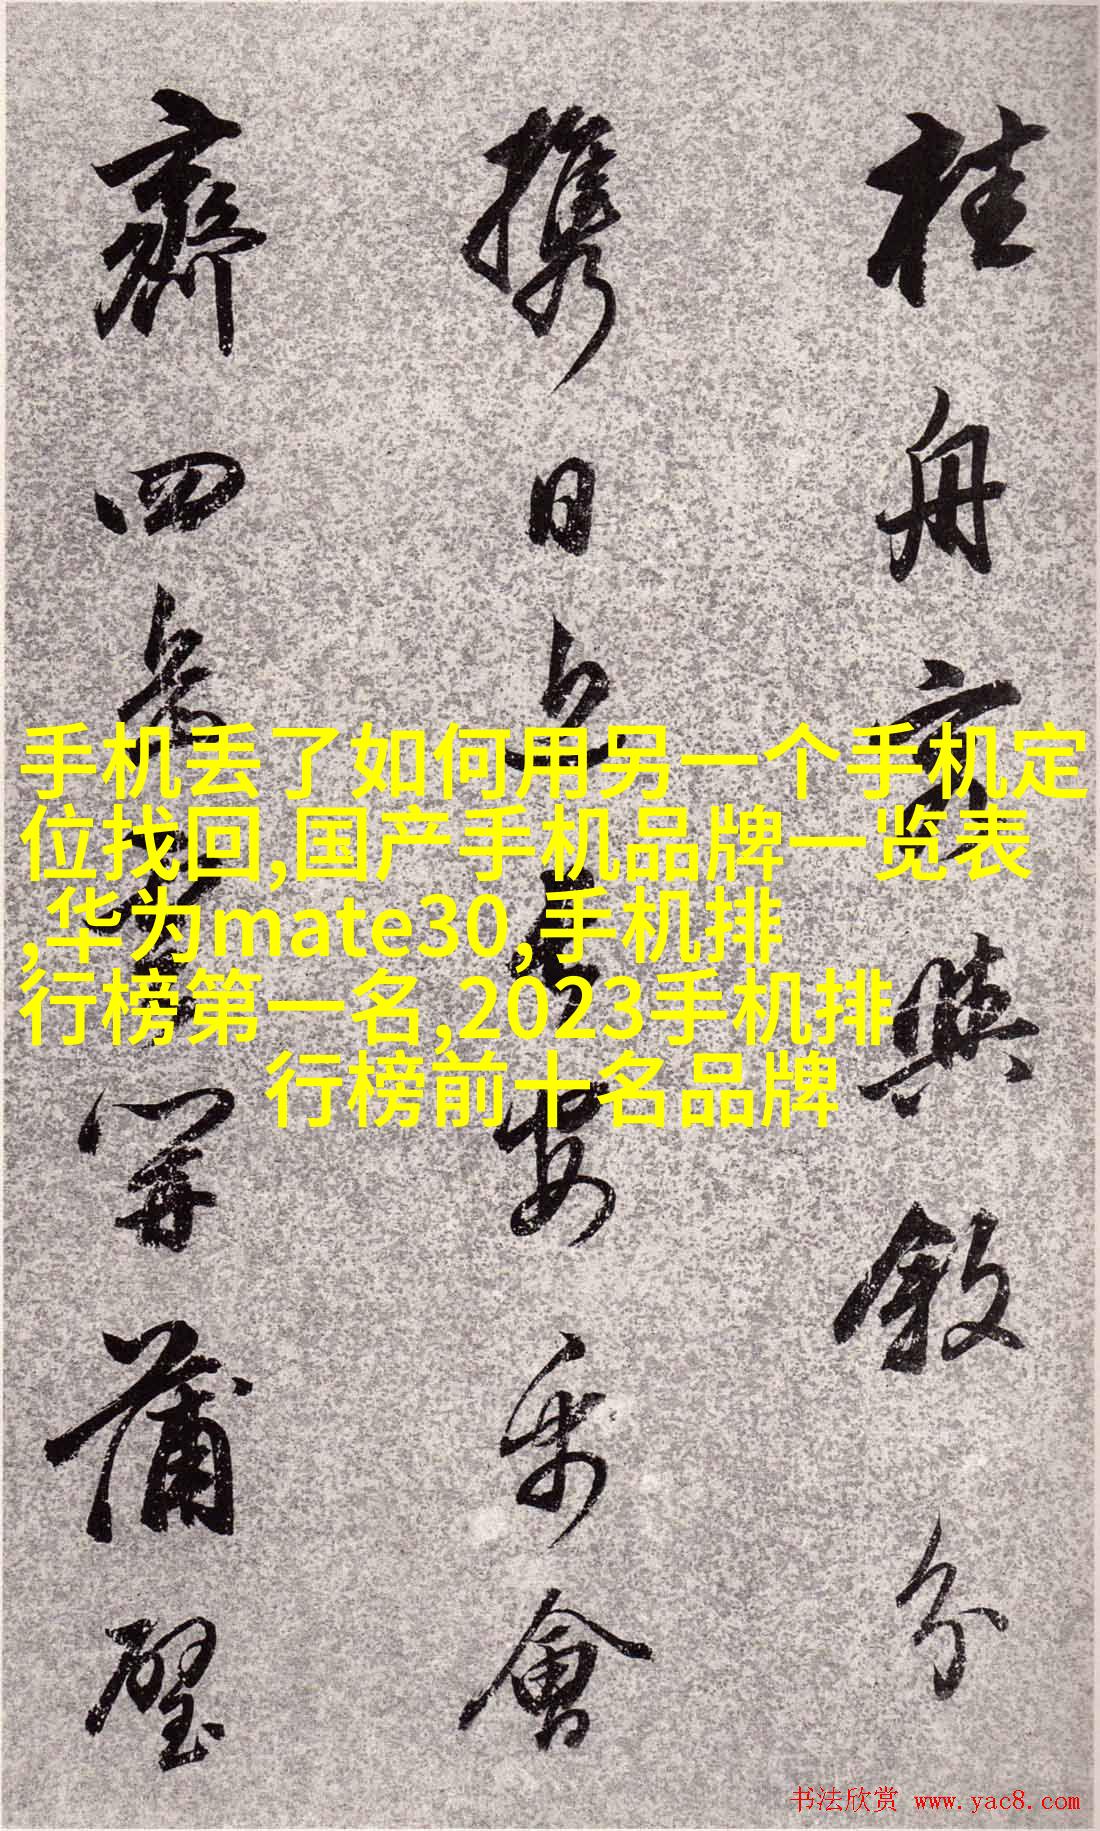 桂舟寅與敘分
携日邑安安乐會
齊四岳軍開蒲璧
手机丢了如何用另一个手机定
位找回,国产手机品牌一览表
,华为mate30,手机排
行榜第一名,2023手机排
行榜前十名品牌
书法欣赏 www.yac8.com